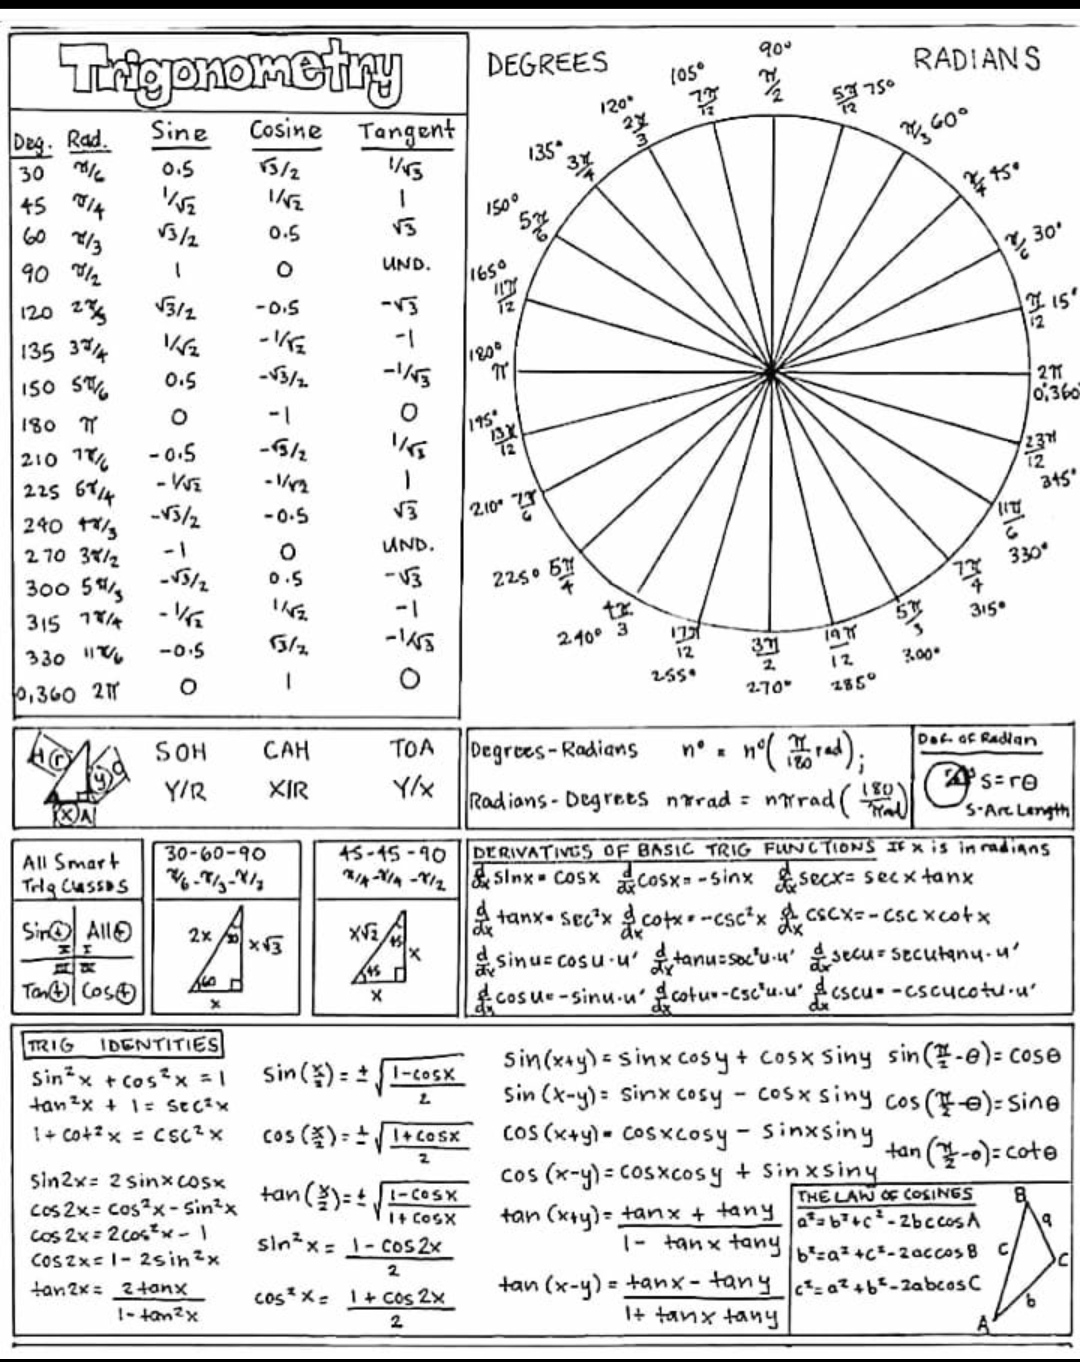 Trigonometry
Deg. Rad. Sine Cosine Tangent
30 π/6 0.5 √3/2 1/√3
45 π/4 1/√2 1/√2 1
60 π/3 √3/2 0.5 √3
90 π/2 1 0 UND.
120 2π/3 √3/2 -0.5 -√3
135 3π/4 1/√2 -1/√2 -1
150 5π/6 0.5 -√3/2 -1/√3
180 π 0 -1 0
210 7π/6 -0.5 -√3/2 1/√3
225 5π/4 -1/√2 -1/√2 1
240 4π/3 -√3/2 -0.5 √3
270 3π/2 -1 0 UND.
300 5π/3 -√3/2 0.5 -√3
315 7π/4 -1/√2 1/√2 -1
330 11π/6 -0.5 √3/2 -1/√3
0,360 2π 0 1 0
DEGREES
RADIANS
90° π/2
75° 5π/12
60° π/3
45° π/4
30° π/6
15° π/12
2π 0°,360
23π/12 345°
11π/6 330°
7π/4 315°
5π/3 300°
19π/12 285°
3π/2 270°
17π/12 255°
4π/3 240°
5π/4 225°
7π/6 210°
13π/12 195°
180° π
165° 11π/12
150° 5π/6
135° 3π/4
120° 2π/3
105° 7π/12
H r y O X A
SOH CAH TOA
Y/R X/R Y/X
Degrees-Radians n° = n°(π/180 rad);
Radians-Degrees nπrad = nπrad(180/πrad)
Def. of Radian
S=rθ
S-Arc Length
All Smart
Trig Classes
Sin⊕ All⊕
II I
III IV
Tan⊕ Cos⊕
30-60-90
π/6-π/3-π/2
2x 30 x√3
60
x
45-45-90
π/4-π/4-π/2
x√2 45 x
45
x
DERIVATIVES OF BASIC TRIG FUNCTIONS If x is in radians
d/dx sinx = cosx d/dx cosx = -sinx d/dx secx = secx tanx
d/dx tanx = sec²x d/dx cotx = -csc²x d/dx cscx = -cscx cotx
d/dx sinu = cosu·u' d/dx tanu = sec²u·u' d/dx secu = secutanu·u'
d/dx cosu = -sinu·u' d/dx cotu = -csc²u·u' d/dx cscu = -cscucotu·u'
TRIG IDENTITIES
sin²x + cos²x = 1
tan²x + 1 = sec²x
1 + cot²x = csc²x
sin2x = 2sinxcosx
cos2x = cos²x - sin²x
cos2x = 2cos²x - 1
cos2x = 1 - 2sin²x
tan2x = 2tanx/1-tan²x
sin(x/2) = ±√(1-cosx/2)
cos(x/2) = ±√(1+cosx/2)
tan(x/2) = ±√(1-cosx/1+cosx)
sin²x = 1-cos2x/2
cos²x = 1+cos2x/2
sin(x+y) = sinxcosy + cosxsiny
sin(x-y) = sinxcosy - cosxsiny
cos(x+y) = cosxcosy - sinxsiny
cos(x-y) = cosxcosy + sinxsiny
tan(x+y) = tanx + tany/1 - tanxtany
tan(x-y) = tanx - tany/1 + tanxtany
sin(π/2-θ) = cosθ
cos(π/2-θ) = sinθ
tan(π/2-θ) = cotθ
THE LAW OF COSINES
a² = b² + c² - 2bccosA
b² = a² + c² - 2accosB
c² = a² + b² - 2abcosC
B
a
c
C
b
A